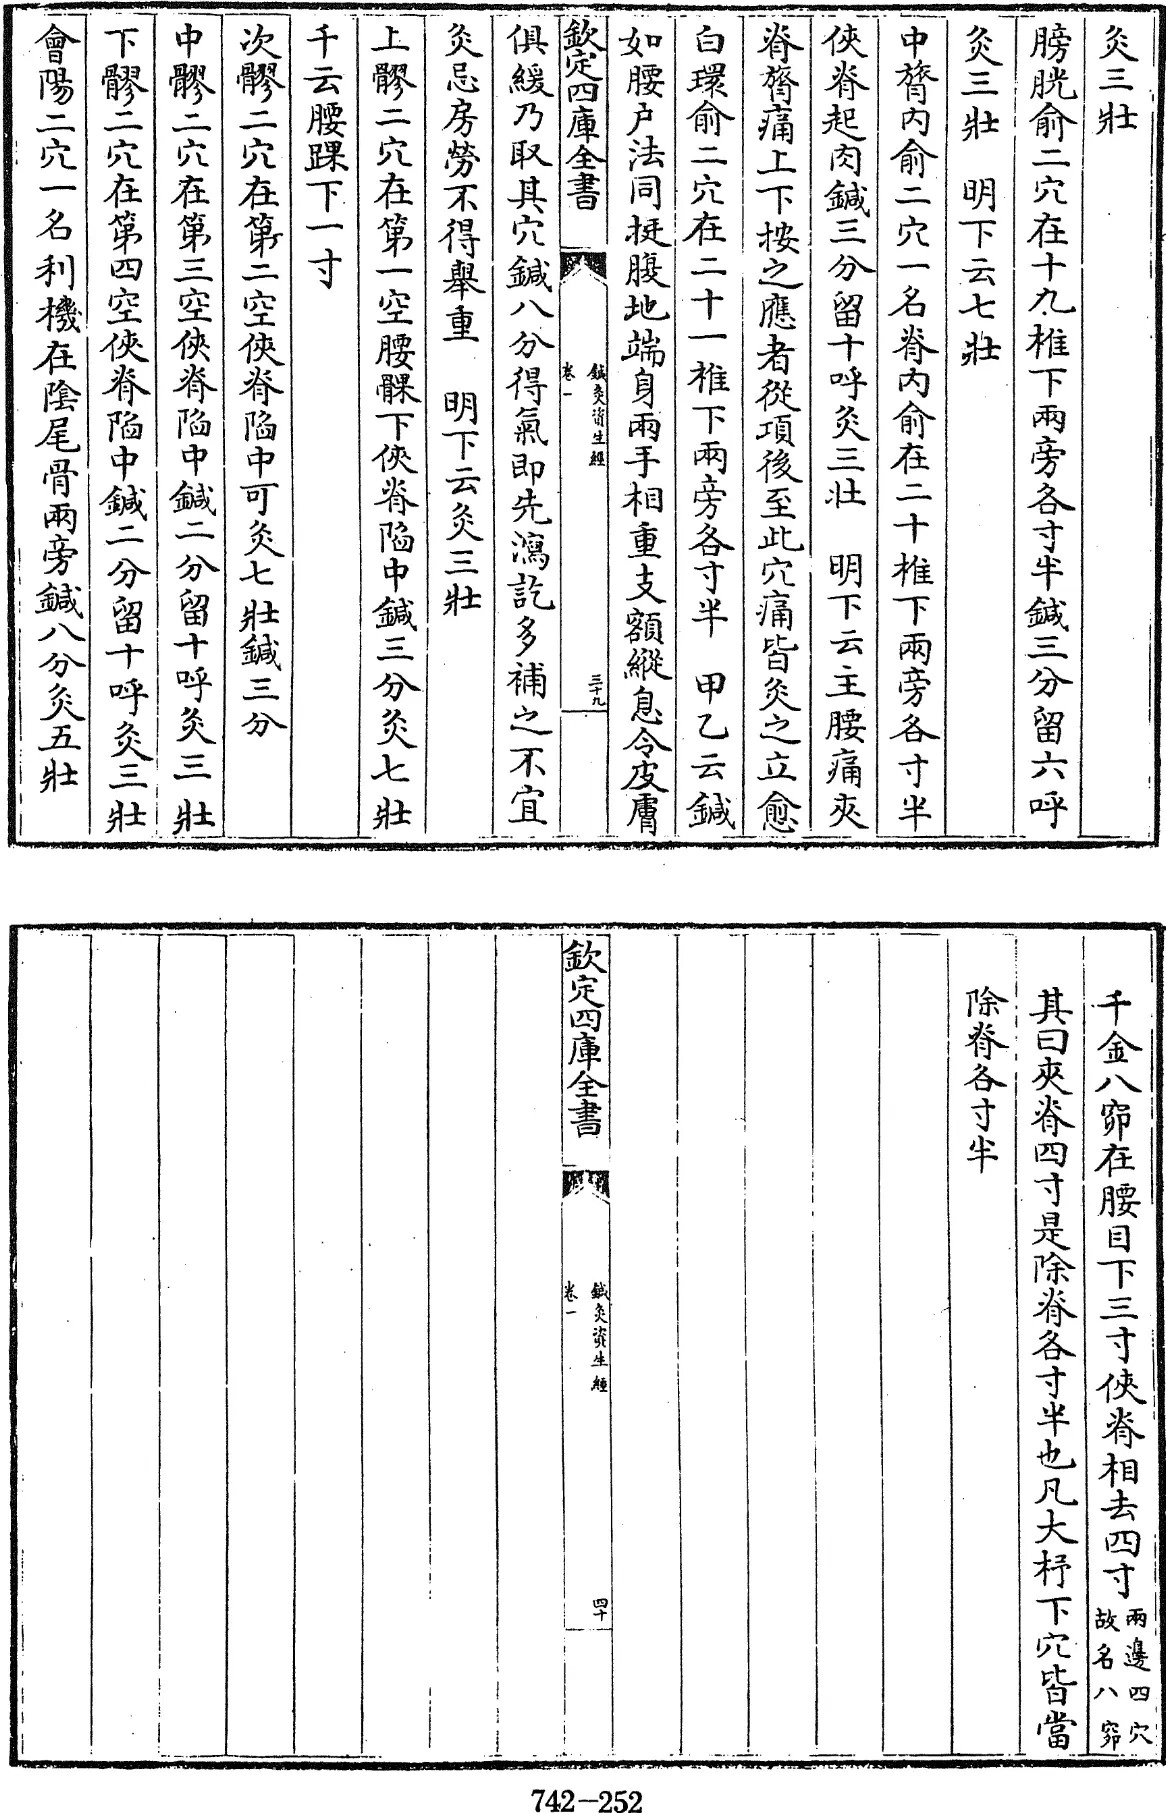 灸三壯
膀胱俞二穴在十九椎下兩旁各寸半鍼三分留六呼
灸三壯　明下云七壯
中膂內俞二穴一名脊內俞在二十椎下兩旁各寸半
俠脊起肉鍼三分留十呼灸三壯　明下云主腰痛夾
脊膂痛上下按之應者從項後至此穴痛皆灸之立愈
白環俞二穴在二十一椎下兩旁各寸半　甲乙云鍼
如腰户法同挺腹地端身兩手相重支額縱息令皮膚
欽定四庫全書
鍼灸資生經
卷一
三十九
俱緩乃取其穴鍼八分得氣即先瀉訖多補之不宜
灸忌房勞不得舉重　明下云灸三壯
上髎二穴在第一空腰髁下俠脊陷中鍼三分灸七壯
千云腰踝下一寸
次髎二穴在第二空俠脊陷中可灸七壯鍼三分
中髎二穴在第三空俠脊陷中鍼二分留十呼灸三壯
下髎二穴在第四空俠脊陷中鍼二分留十呼灸三壯
會陽二穴一名利機在陰尾骨兩旁鍼八分灸五壯
千金八窌在腰目下三寸俠脊相去四寸兩邊四穴故名八窌
其曰夾脊四寸是除脊各寸半也凡大杼下穴皆當
除脊各寸半
欽定四庫全書
鍼灸資生經
卷一
四十
742-252